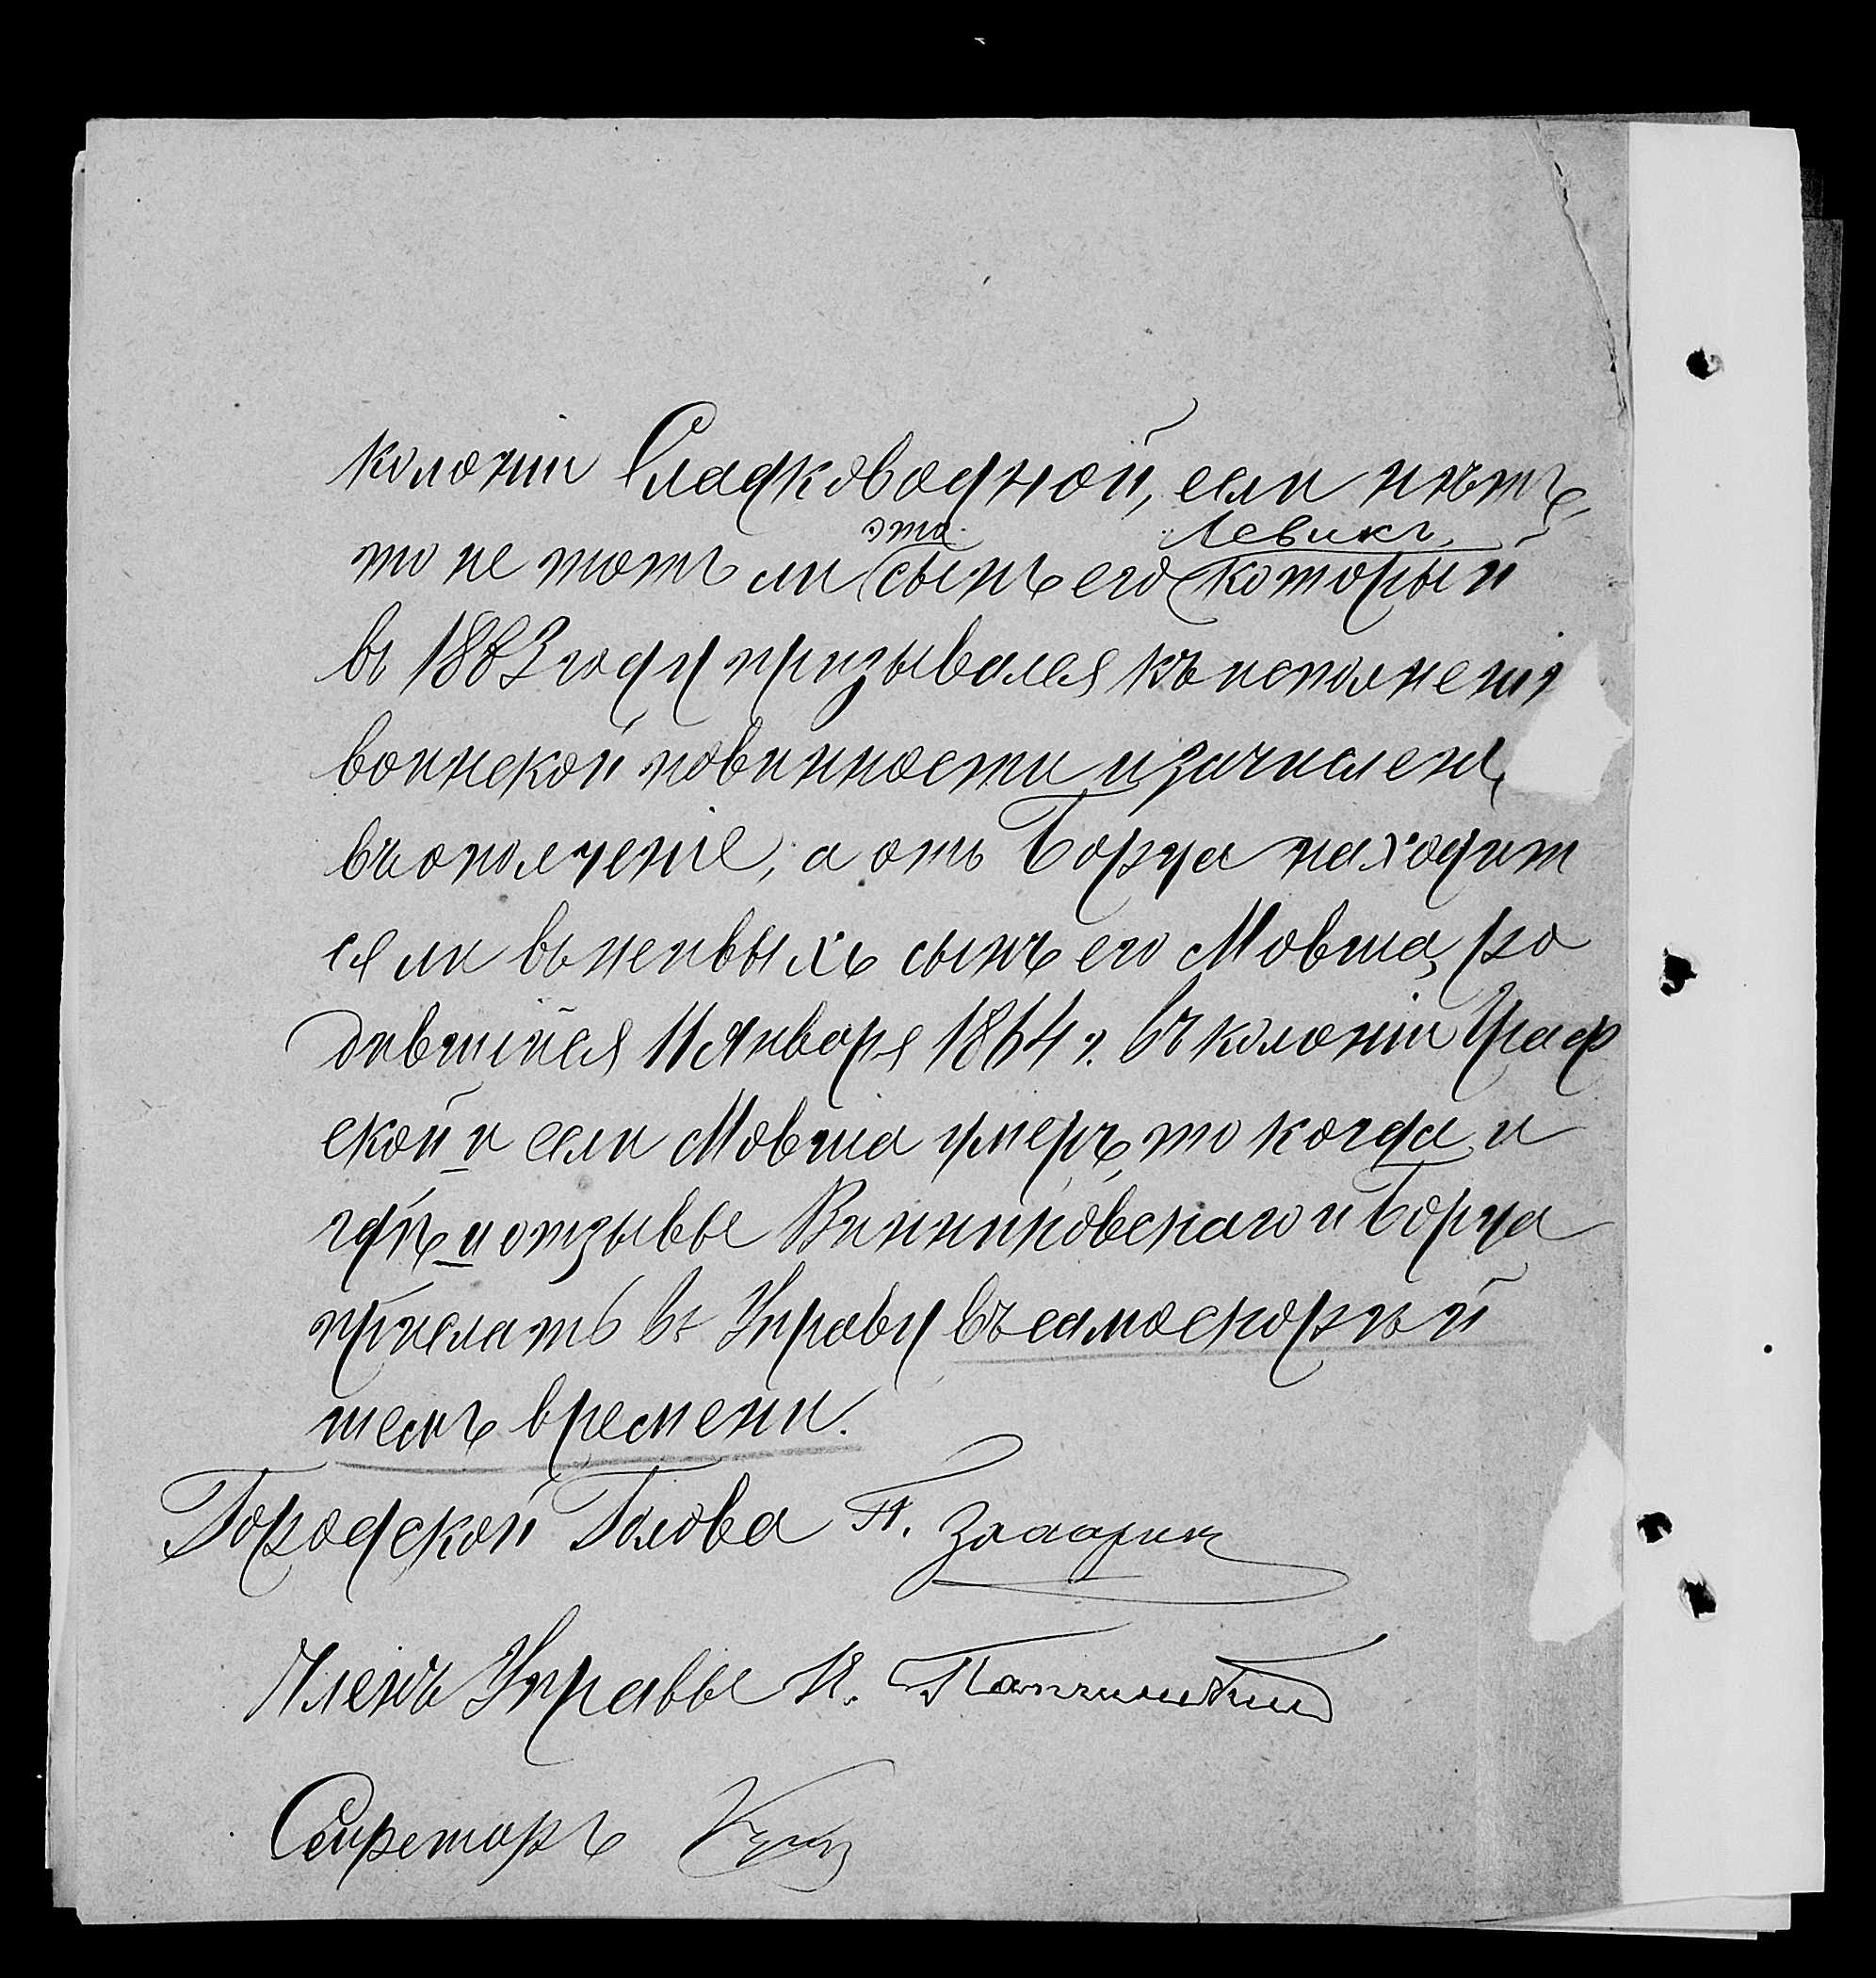 колоніи Сладководной, если нѣтъ,
то не тотъ ли это сынъ его Левикъ, который
въ 1883 году призывался къ исполнені
воинской повинности и зачисленъ
въ ополченіе, а отъ Борца находит
ся ли въ живыхъ сынъ его Мовша, ро
дившійся 11 Января 1864 г. въ колоніи Граф
ской и если Мовша умеръ, то когда и
гдѣ и отзывы Винниковскаго и Борца
прислать въ Управу въ самоскорѣй
шемъ времени.
Городской Голова П.
Членъ Управы И.
Секретарь